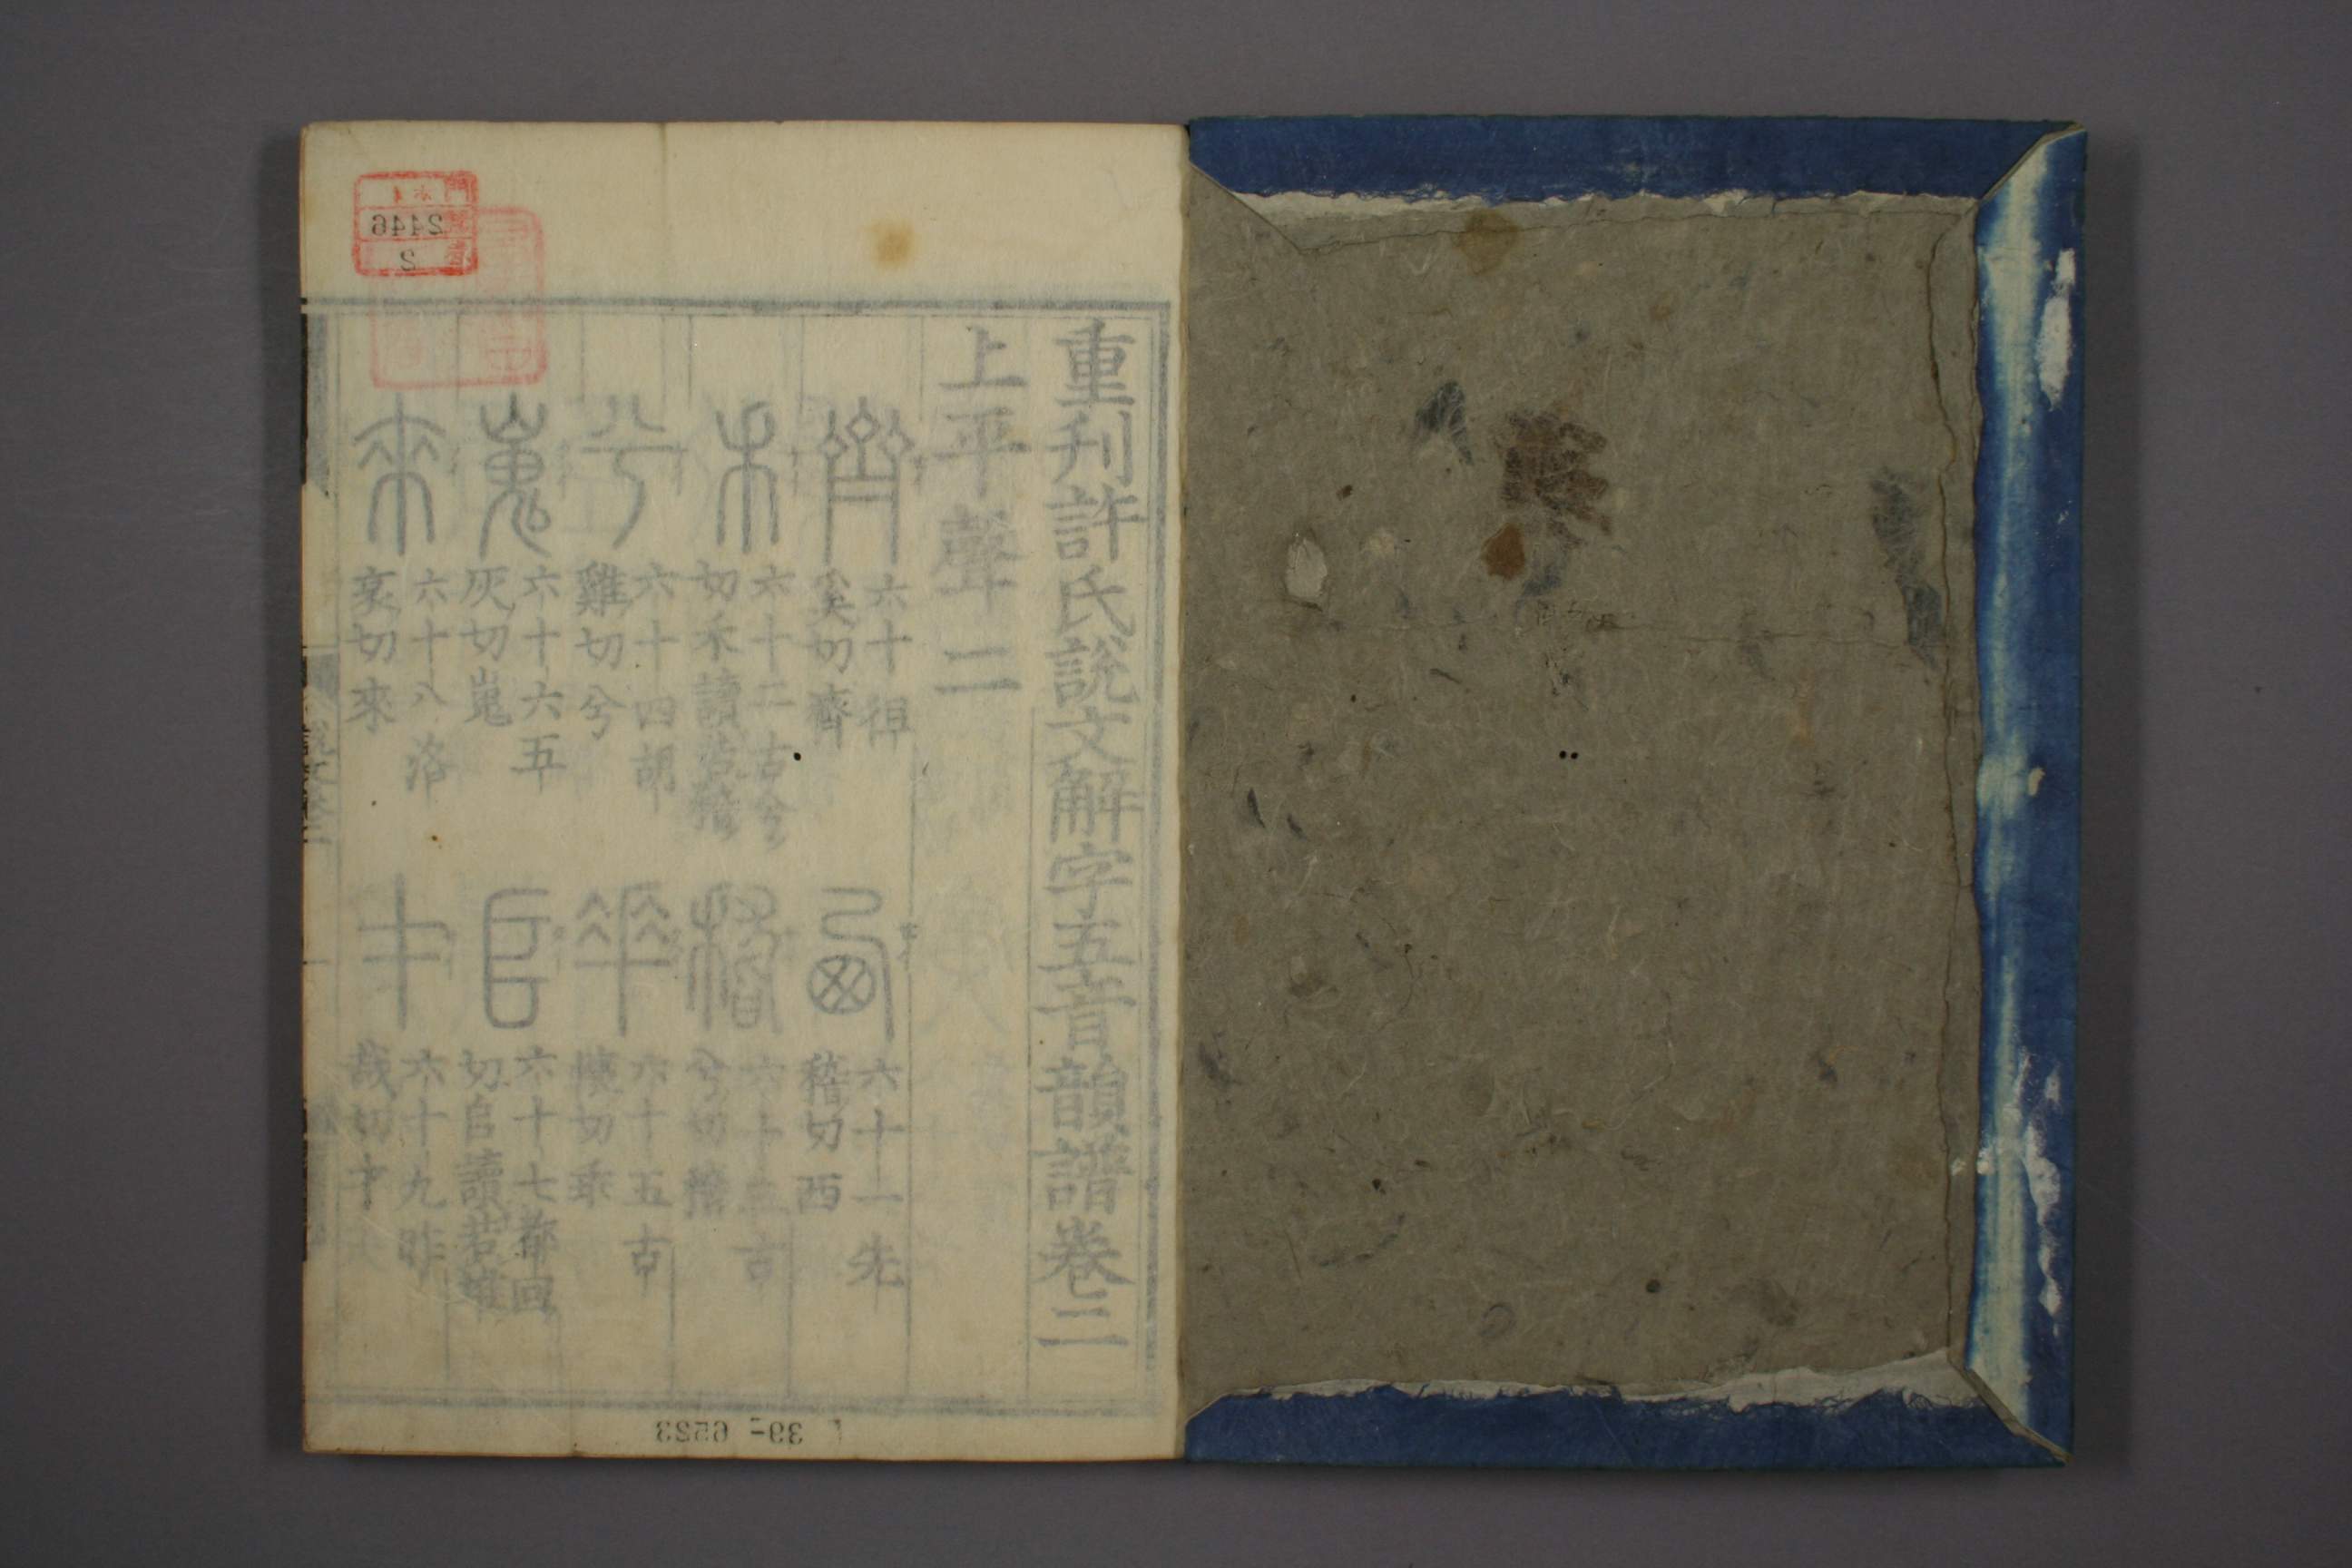 重刋許氏說文解字五音韻譜卷二
上平聲二
齊 六十徂奚切齊
西 六十一先稽切西
禾 六十二古兮切禾讀若稽
稽 六十三古兮切稽
兮 六十四胡雞切兮
乖 六十五古懷切乖
嵬 六十六五灰切嵬
𠂤 六十七都回切𠂤讀若堆
來 六十八洛哀切來
才 六十九昨哉切才
2446
2
39-6523